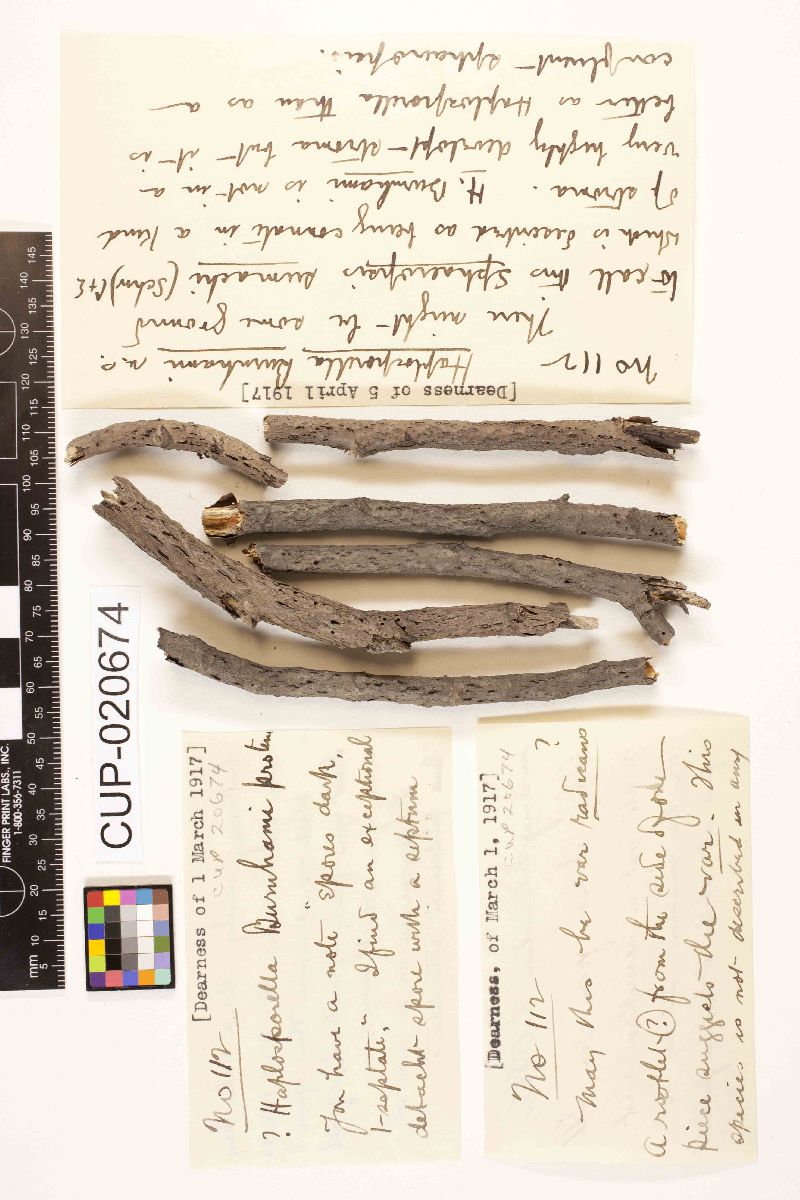 [Dearness of 5 April 1917]
No 112 Haplosporella Burnhami n.s.
There might be some ground
to call this Sphaeropsis sumachi (Schw) C+E
which is described as being connate in a kind
of stroma. H. Burnhami is not in a
very highly developt stroma but it is
better as Haplosporella than as a
confluent Sphaeropsis.
CUP-020674
[Dearness of 1 March 1917]
CUP 20674
No 112
? Haplosporella Burnhamii protem
You have a note "spores dark,
1-septate," I find an exceptional
detacht spore with a septum
[Dearness, of March 1, 1917]
CUP 20674
No 112 ?
May this be var radicans
A rootlet (?) from the side of one
piece suggests the var. This
species is not described in any
FINGER PRINT LABS., INC.
1-800-356-7311
mm 5 10 15 20 25 30 35 40 45 50 55 60 65 70 75 80 85 90 95 100 105 110 115 120 125 130 135 140 145